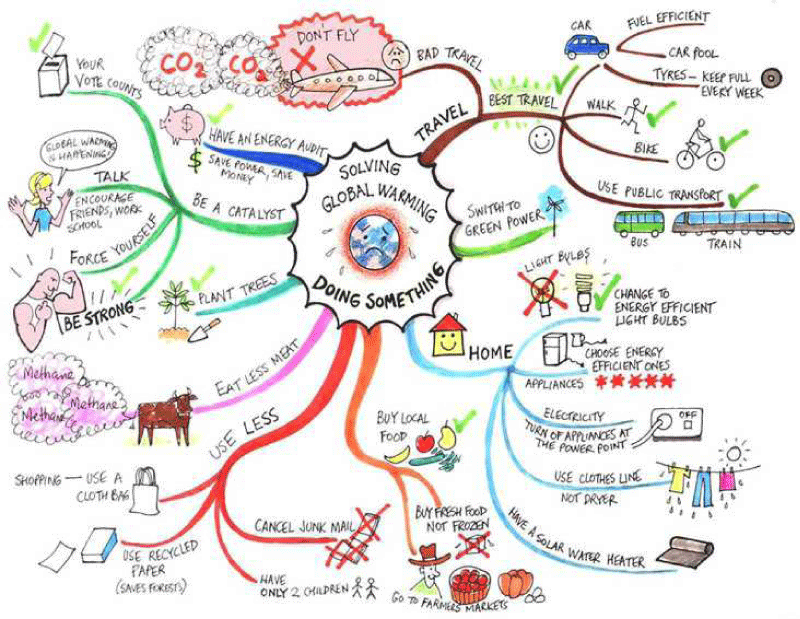 SOLVING
GLOBAL WARMING
DOING SOMETHING
TRAVEL
BAD TRAVEL
DON'T FLY
CO2
CO2
BEST TRAVEL
CAR
FUEL EFFICIENT
CAR POOL
TYRES – KEEP FULL
EVERY WEEK
WALK
BIKE
USE PUBLIC TRANSPORT
BUS
TRAIN
SWITH TO
GREEN POWER
HOME
LIGHT BULBS
CHANGE TO
ENERGY EFFICIENT
LIGHT BULBS
APPLIANCES
CHOOSE ENERGY
EFFICIENT ONES
ELECTRICITY
TURN OF APPLIANCES AT
THE POWER POINT
OFF
USE CLOTHES LINE
NOT DRYER
HAVE A SOLAR WATER HEATER
BUY LOCAL
FOOD
BUY FRESH FOOD
NOT FROZEN
GO TO FARMERS MARKETS
USE LESS
SHOPPING — USE A
CLOTH BAG
USE RECYCLED
PAPER
(SAVES FORESTS)
CANCEL JUNK MAIL
HAVE
ONLY 2 CHILDREN
EAT LESS MEAT
Methane
Methane
Methane
PLANT TREES
BE A CATALYST
YOUR
VOTE COUNTS
TALK
ENCOURAGE
FRIENDS, WORK
SCHOOL
GLOBAL WARMING
IS HAPPENING!
FORCE YOURSELF
BE STRONG
HAVE AN ENERGY AUDIT
SAVE POWER, SAVE
MONEY
$